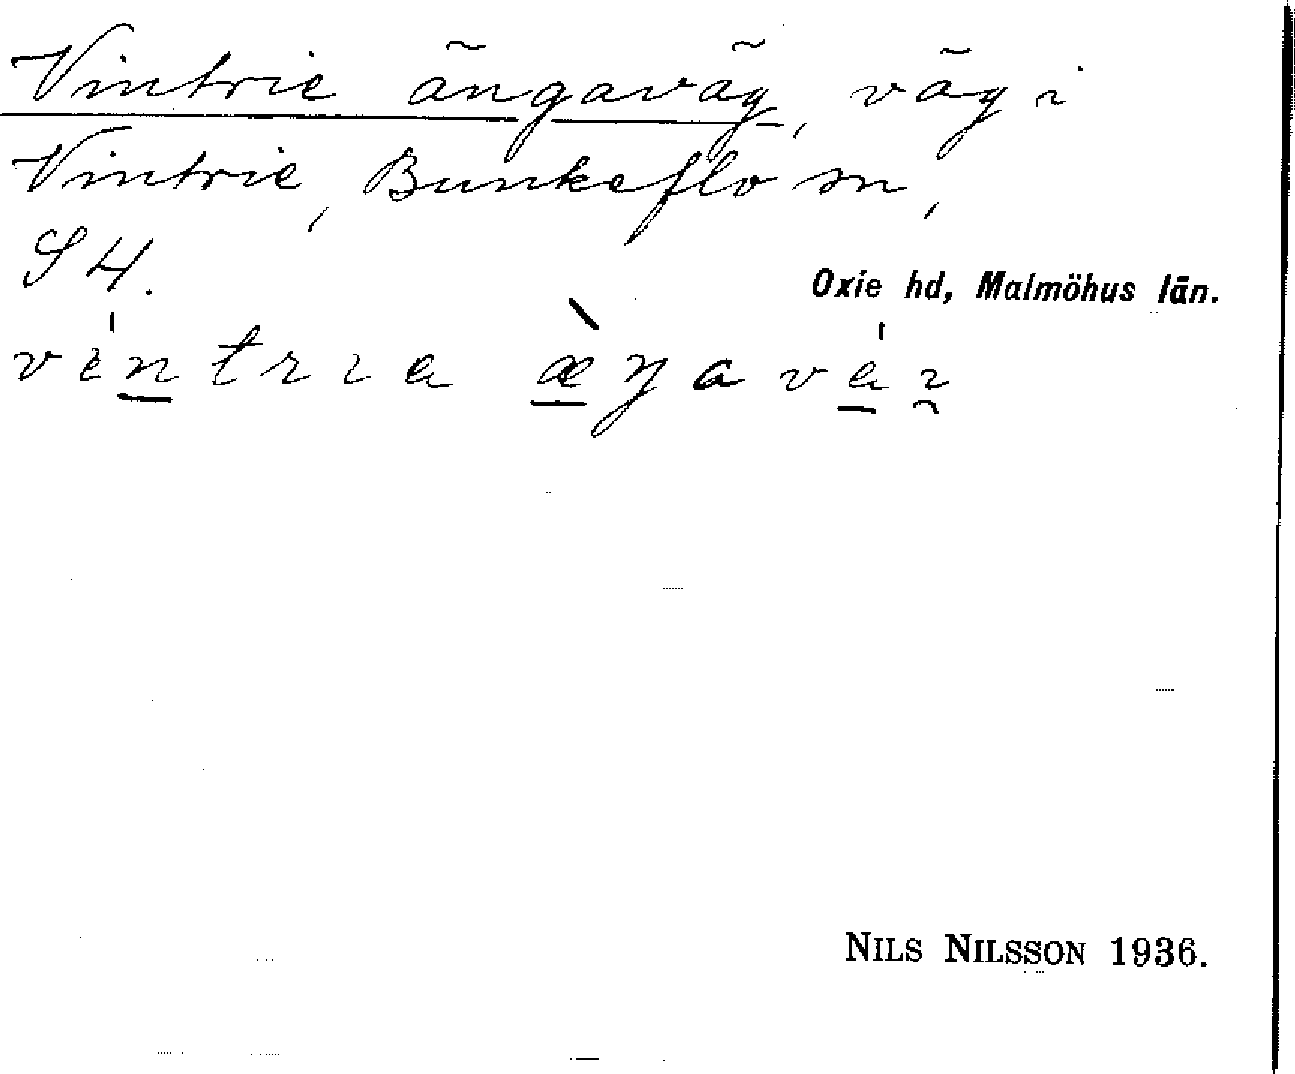 Vintrie ängaväg, väg i
Vintrie, Bunkeflo sn,
S4.
Oxie hd, Malmöhus län.
vintria æŋavaı
NILS NILSSON 1936.